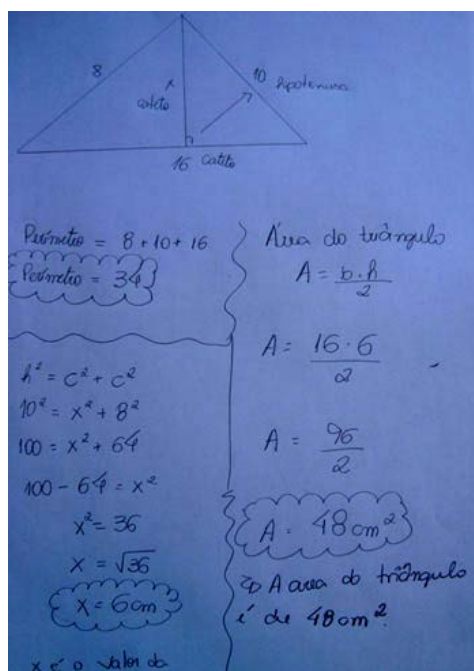 8
10 hipotenusa
cateto x
16 cateto
Perímetro = 8 + 10 + 16
Perímetro = 34
h² = c² + c²
10² = x² + 8²
100 = x² + 64
100 - 64 = x²
x² = 36
x = √36
x = 6 cm
x é o valor da
Área do triângulo
A = b.h / 2
A = 16 . 6 / 2
A = 96 / 2
A = 48 cm²
A area do triângulo
é de 48 cm².